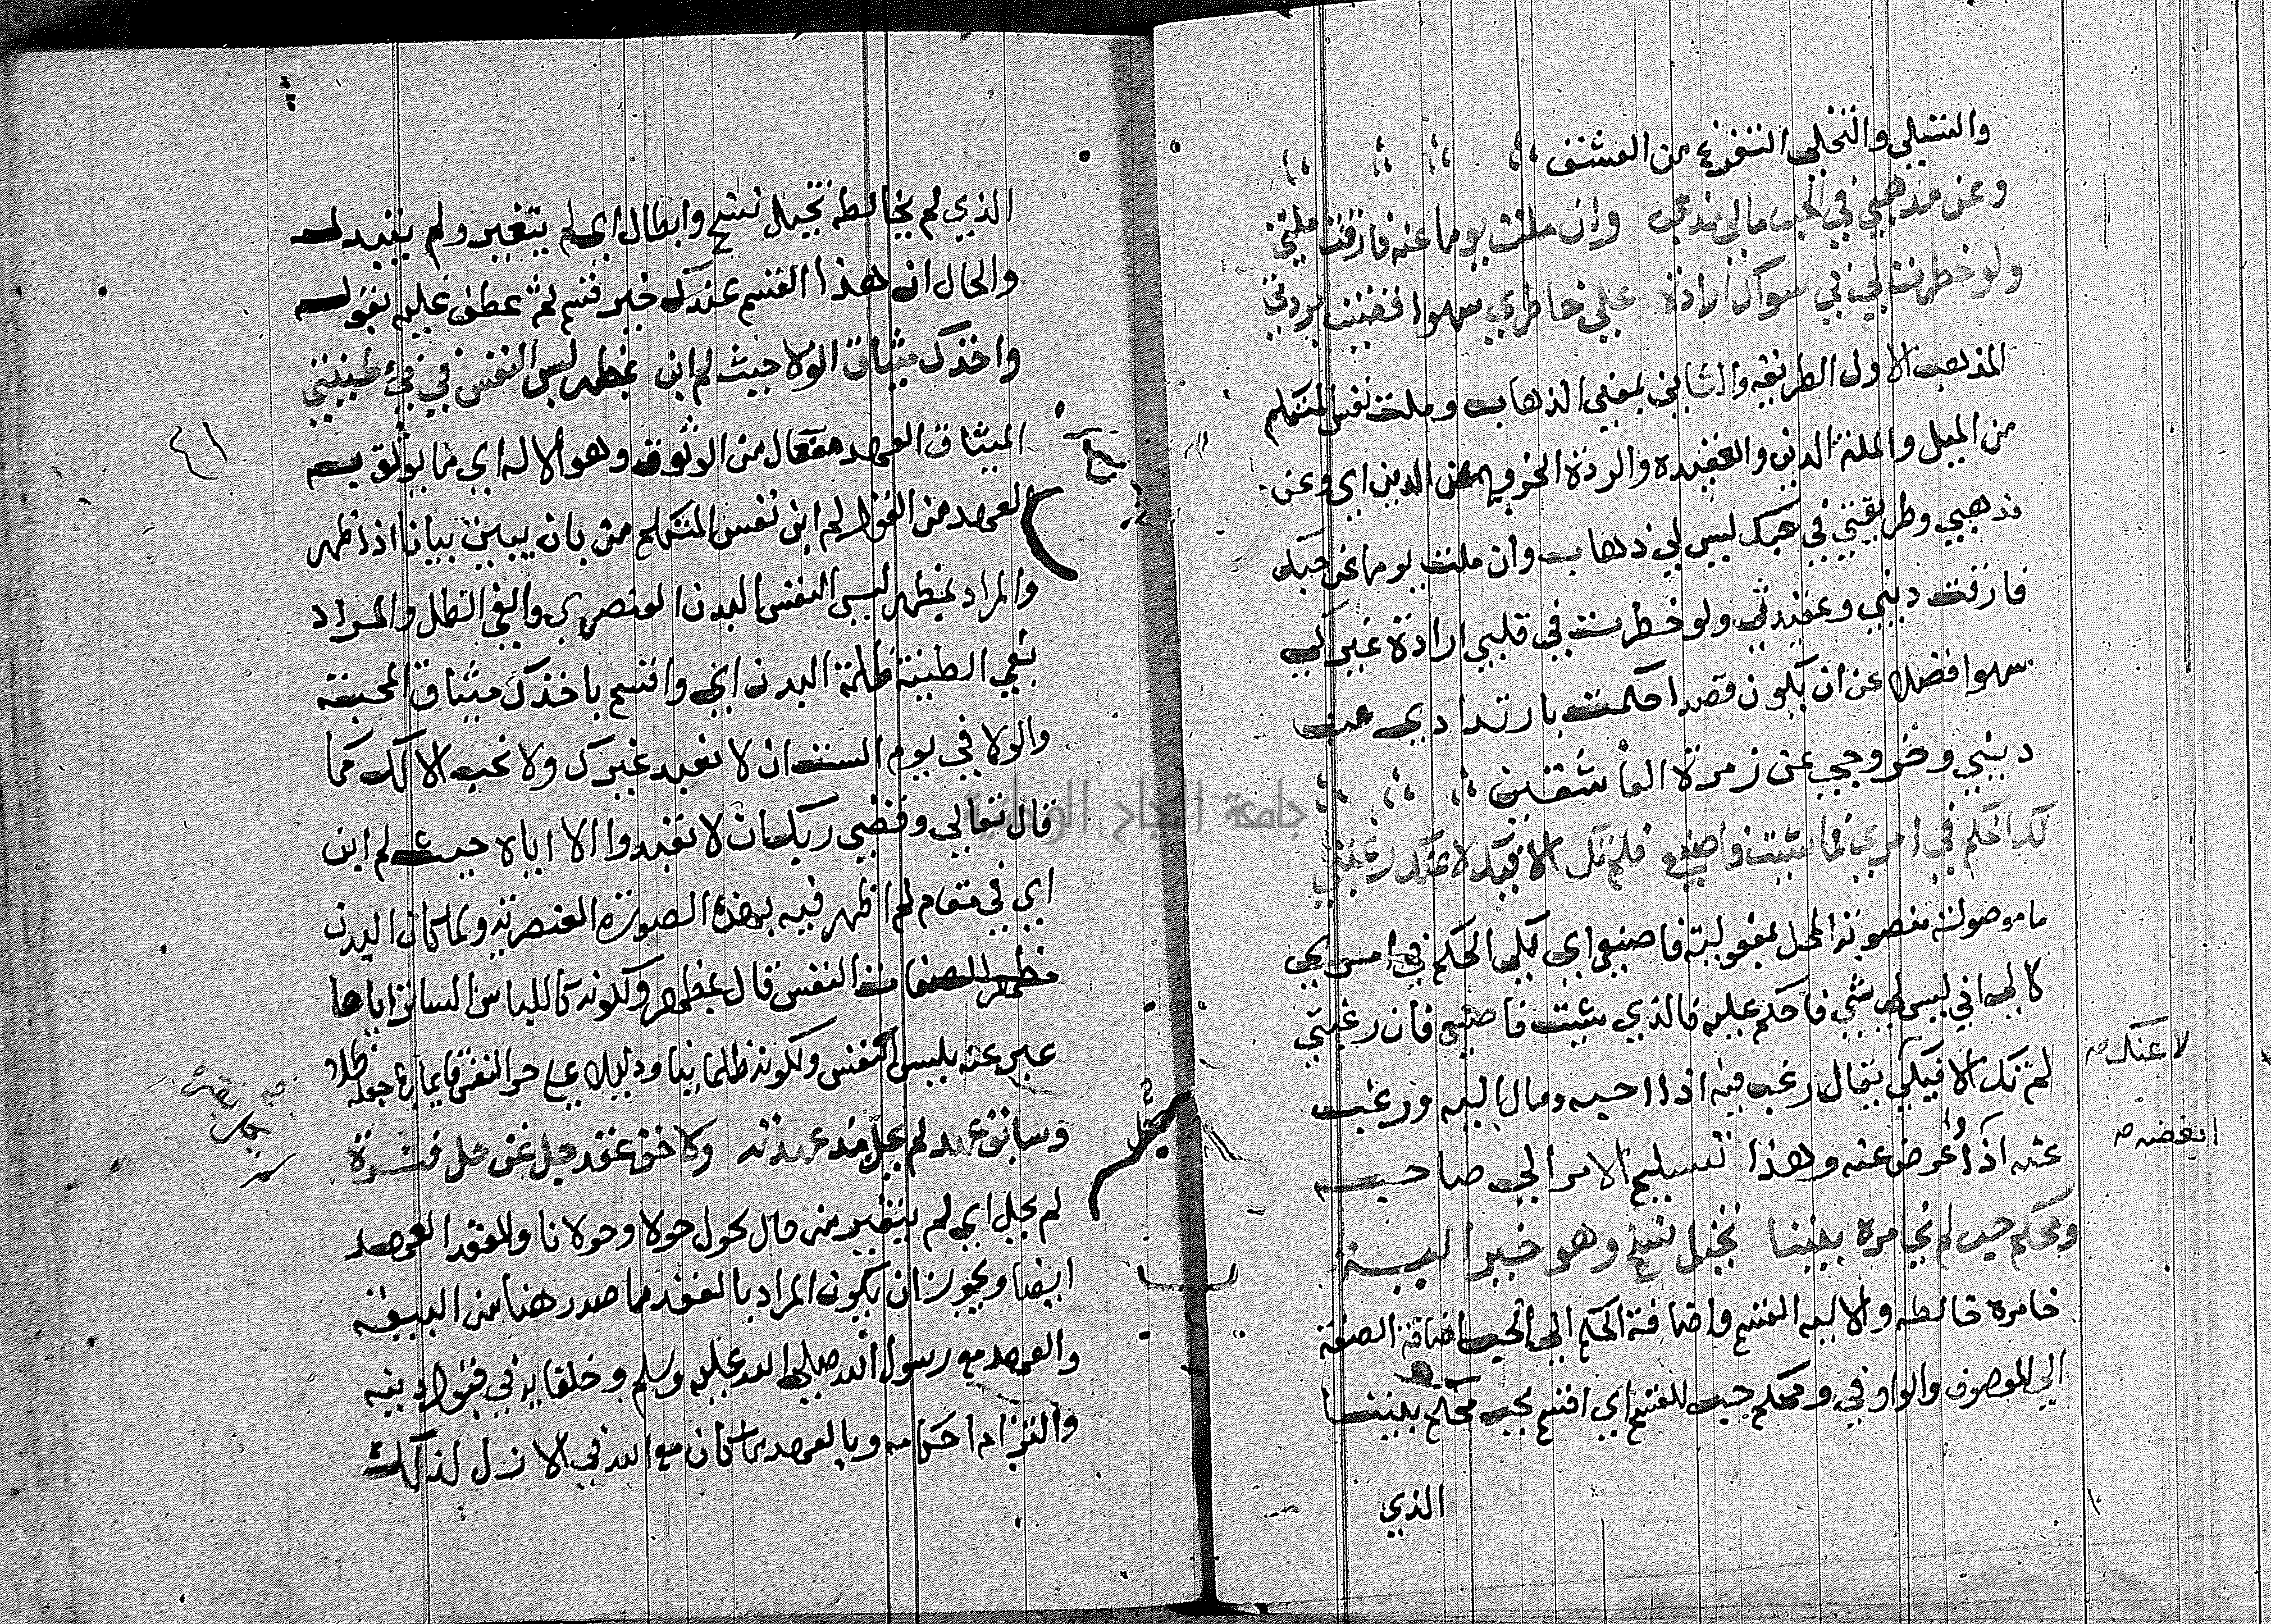 والتسلي والتخلي التفرغ من العشق
وعن مذهبي في الحب مالي مذهب وان ملت يوما عنه فارقت ملتي
ولو خطرت لي في سواك ارادة علي خاطري سهوا قضيت بردتي
المذهب الاول الطريقه والثاني بمعني الذهاب وملت نفس المتكلم
من الميل والملة الدين والعقيده والردة الخروج عن الدين اي وعن
مذهبي وطريقتي في حبك ليس لي ذهاب وان ملت يوما عن حبك
فارقت ديني وعقيدتي ولو خطرت في قلبي ارادة غيرك
سهوا فضلا عن ان يكون قصدا حكمت بارتدادي عن
ديني وخروجي عن زمرة العاشقين
لك الحكم في امري فما شئت فاصنعي فلم تك الا فيك لا عنك رغبتي
ما موصولة منصوبة المحل بمفعولية فاصنعي اي لك الحكم في امري
لاني ليس لي شي فاحكم عليه فالذي شئت فاصنعي فان رغبتي
لم تك الا فيك يقال رغب فيه اذا احبه ومال اليه ورغب
لا عنك صح
عنه اذا اعرض عنه وهذا تسليم الامر الي صاحبه
ابغضه صح
ومحكم حب لم يخامره بيننا تخيل نسخ وهو خير الية
خامره خالطه والالية القسم واضافة الحكم الي الحب اضافة الصفة
الي الموصوف والواو في ومحكم حب للقسم اي اقسم بحب محكم بيننا
الذي
٤١
الذي لم يخالطه تخيل نسخ وابطال اي لم يتغير ولم يتبدل
والحال ان هذا القسم عندك خير قسم ثم عطف عليه بقوله
واخذك ميثاق الولا حيث لم ابن بمظهر لبس النفس في فيء طينتي
الميثاق العهد مفعال من الوثوق وهو الاله اي ما يوثق به
العهد من القول لم ابن نفس المتكلم من بان يبين بيانا اذا ظهر
والمراد بمظهر لبس النفس البدن العنصري والفي الظل والمراد
بفي الطينة ظلمة البدن اي واقسم باخذك ميثاق المحبة
والولا في يوم الست ان لا نعبد غيرك ولا نحب الا لك كما
قال تعالي وقضي ربك ان لا تعبدوا الا اياه حيث لم ابن
اي في مقام لم اظهر فيه بهذه الصورة العنصرية ولما كان البدن
مظهرا لصفات النفس قال بمظهر ولكونه كاللباس الساتر اياها
عبر عنه بلبس النفس ولكونه ظلمانيا ودليلا علي حر النفس جعله ظلا
وسابق عهد لم يحل مذ عهدته ولاحق عقد جل عن حل فترة
لم يحل اي لم يتغير من حال يحول حولا وحولانا والعقد العهد
ايضا ويجوز ان يكون المراد بالعقد ما صدر هنا من البيعة
والعهد مع رسول الله صلي الله عليه وسلم وخلفايه في قبول دينه
والتزام احكامه وبالعهد ما كان مع الله في الازل لذلك
جامعة النجاح الوطنية